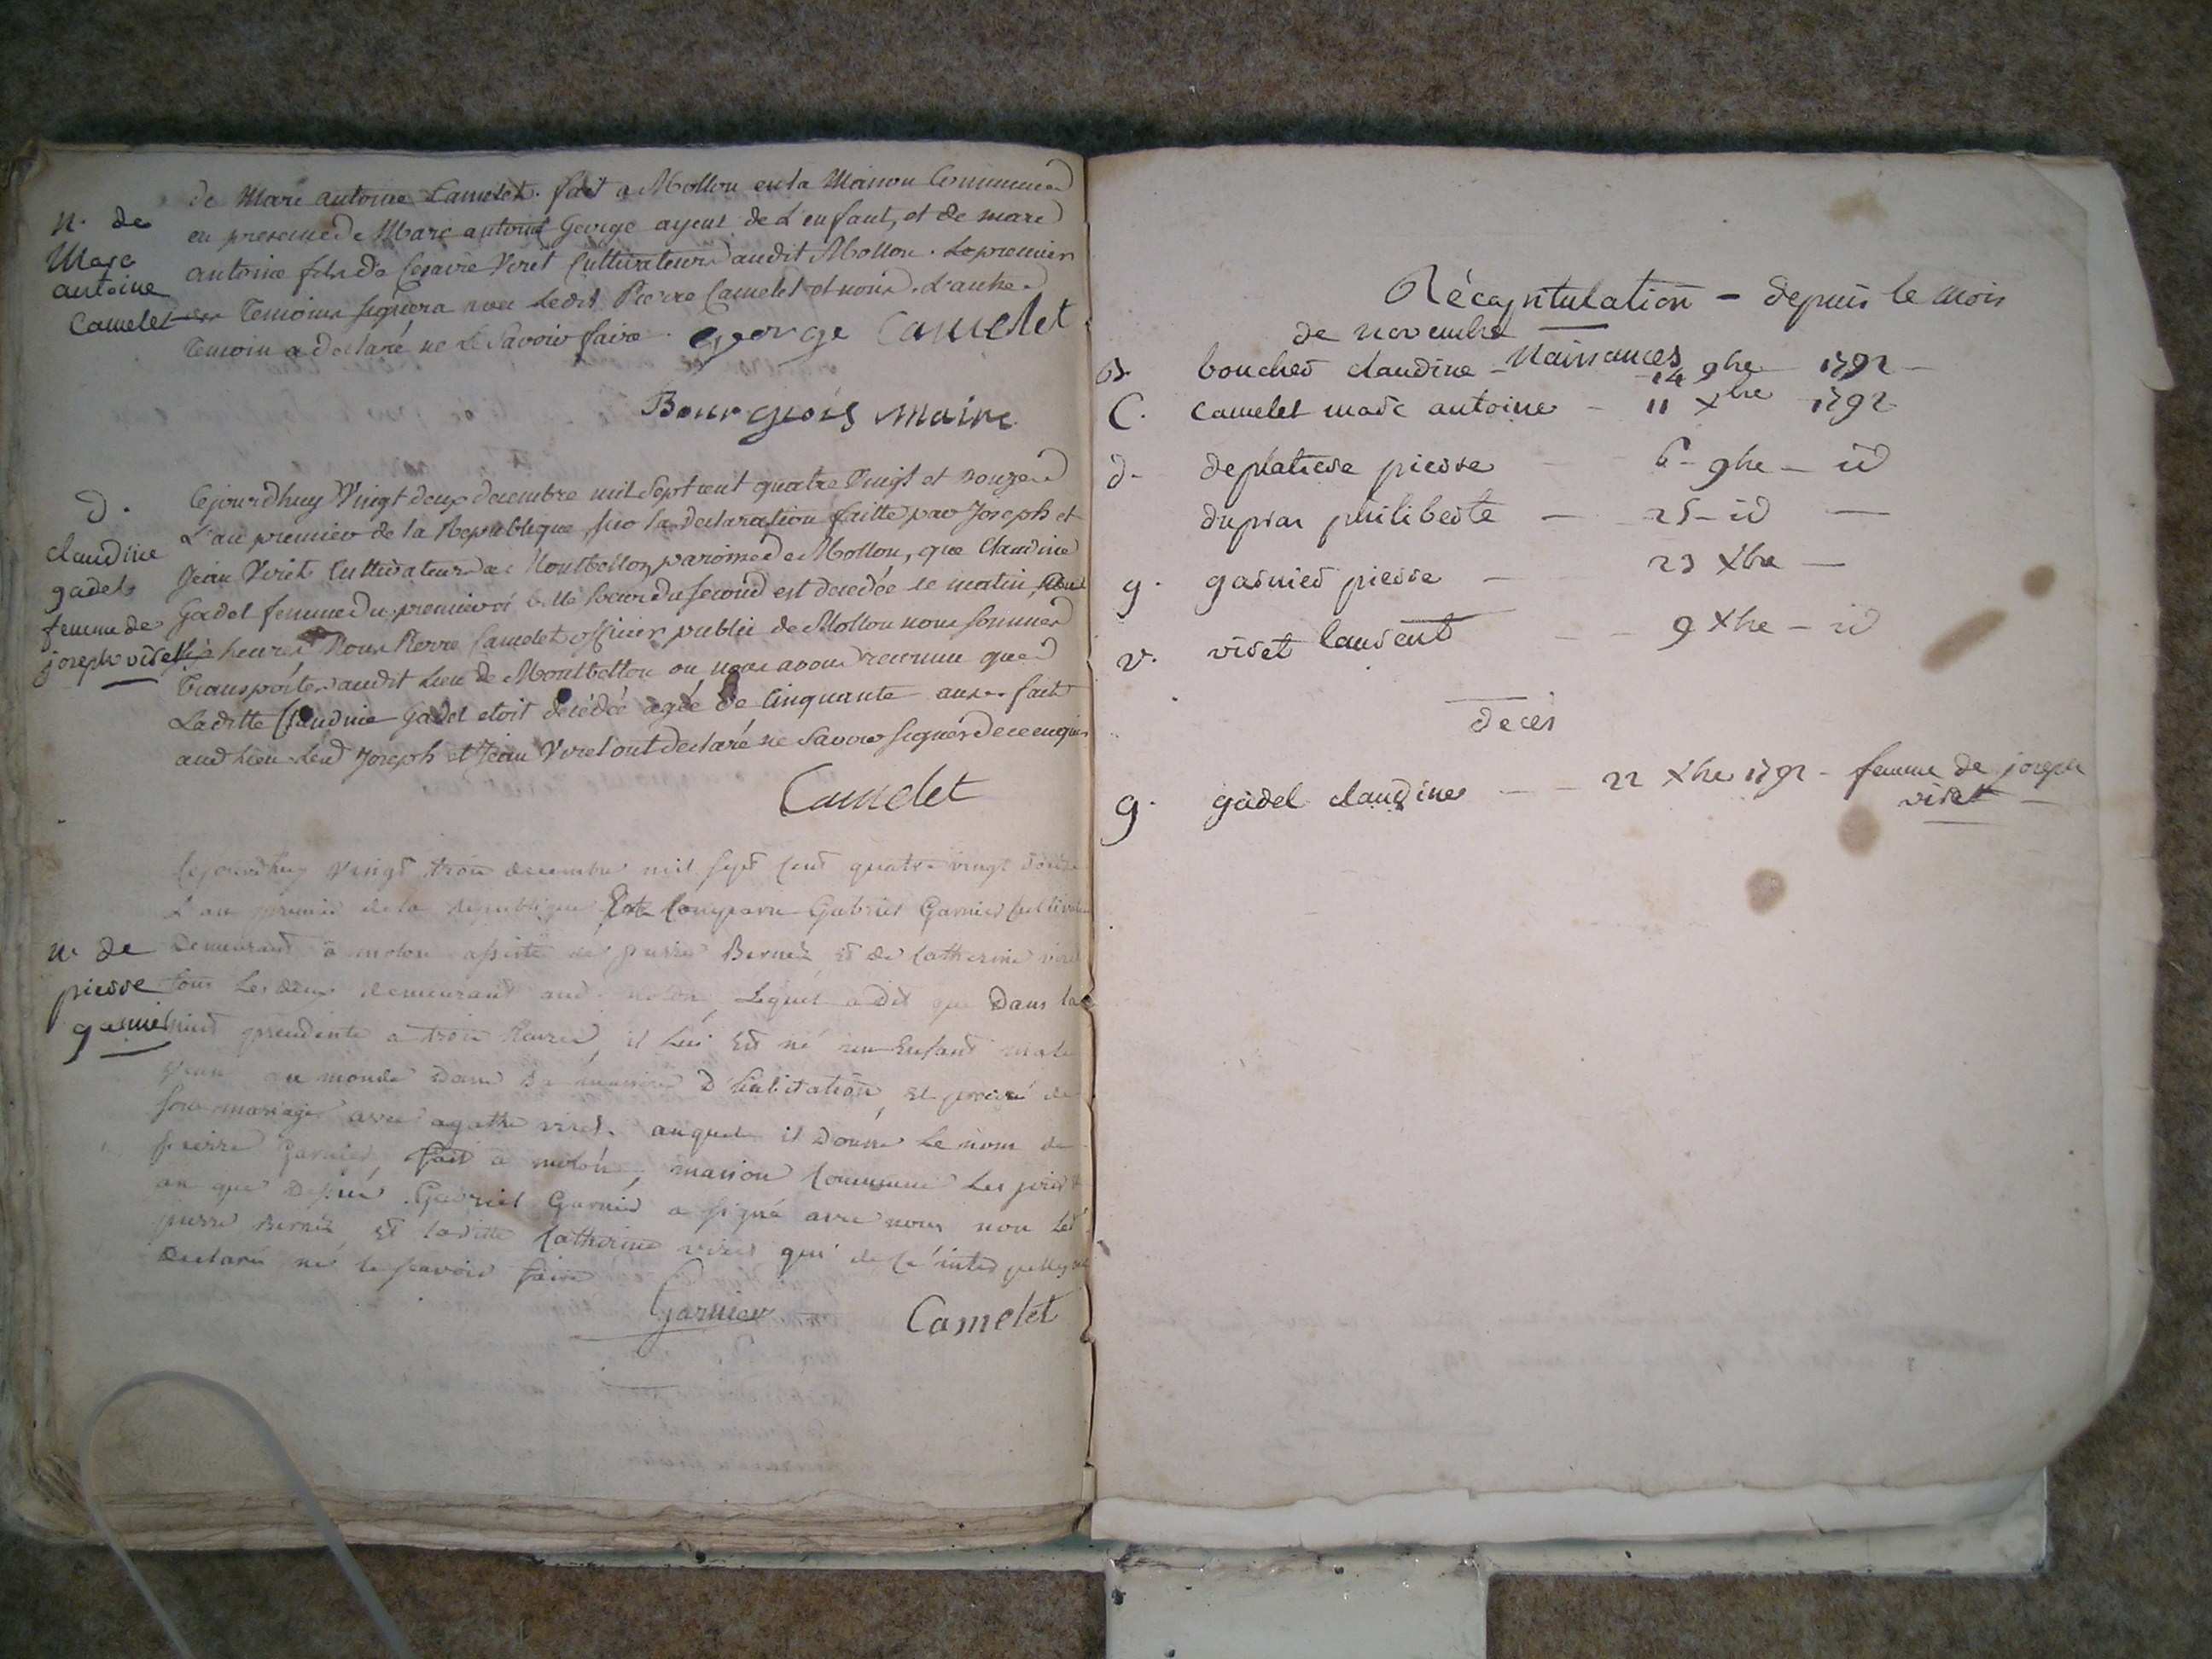 de Marc antoine Camelet. fait a Mollon en la Maison Commune
en presence de Marc antoine George ayeul de L'enfant, et de marc
antoine fils de Cesaire Viret Cultivateurs audit Mollon. Le premier
des Temoins signera avec Ledit Pierre Camelet et nous. L'autre
Temoin a declaré ne Le Savoir faire. george Camelet
N. de
Marc
antoine
Camelet
Bourgeois maire
d.
claudine
gadel
femme de
joseph viret
Cejourdhuy Vingt deux decembre mil Sept cent quatre Vingt et douze
L'an premier de la Republique, sur la declaration faitte par Joseph et
Jean Viret Cultivateurs de Montbellon paroisse de Mollon, que Claudine
Gadel femme du premier et belle Soeur du Second est decedée ce matin
heures Nous Pierre Camelet officier public de Mollon nous sommes
Transporter audit Lieu de Montbellon ou nous avons reconnu que
Laditte Claudine Gadel etoit decédée agée de Cinquante ans. fait
aud Lieu Lesd Joseph et Jean Viret ont declaré ne Savoir signer de ce enquis
Camelet
Cejourdhuy Vingt trois decembre mil sept cent quatre vingt douze
L'an premier de la république Est Comparu Gabriel Garnier Cultivateur
demeurant a molon assisté de pierre Bernez et de Catherine viret
tous Les deux demeurant aud molon, Lequel a dit que Dans la
nuit precedente a trois heures, il Lui Est né un Enfant male
venu au monde dans sa maison D'habitation, et procréé de
son mariage avec agathe viret. auquel il Donne Le nom de
pierre Garnier, fait a molon, maison Commune Les jour et
an que Dessus. Gabriel Garnier a signé avec nous non Led
pierre Bernez Et laditte Catherine viret qui de Ce interpellés ont
declaré ne le scavoir faire
N. de
pierre
garnier
Garnier Camelet
Récapitulation - depuis le mois
de novembre
Naissances
B. boucher claudine - 14 9bre 1792 -
C. Camelet marc antoine - 11 Xbre 1792
d. deplatiere pierre - 6 - 9bre - id
dupras philiberte - 25 - id -
g. garnier pierre - 23 Xbre -
v. viret laurent - 9 Xbre - id
deces
g. gadel claudine - 22 Xbre 1792 - femme de joseph
viret -